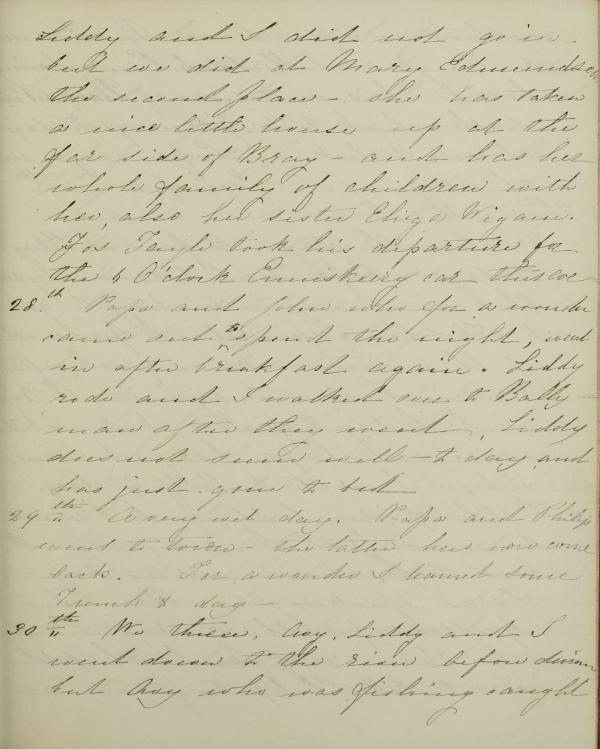 Liddy and I did not go in -
but we did at Mary Edmundson
the second place - she has taken
a nice little house up at the
far side of Bray - and has her
whole family of children with
her, also her sister Eliza Wigam.
Jos Tayle took his departure for
the 6 O'clock Enniskerry car this eve -
28th. Papa and John who for a wonder
came out to spend the night, went
in after breakfast again. Liddy
rode and I walked over to Bally =
man after they went, Liddy
does not seem well to day and
has just gone to bed
29th " A very wet day. Papa and Philip
went to town - the latter has now come
back. For a wonder I learned some
French to day -
30th " We three, Avy, Liddy and I
went down to the river before dinner
but Avy who was fishing caught